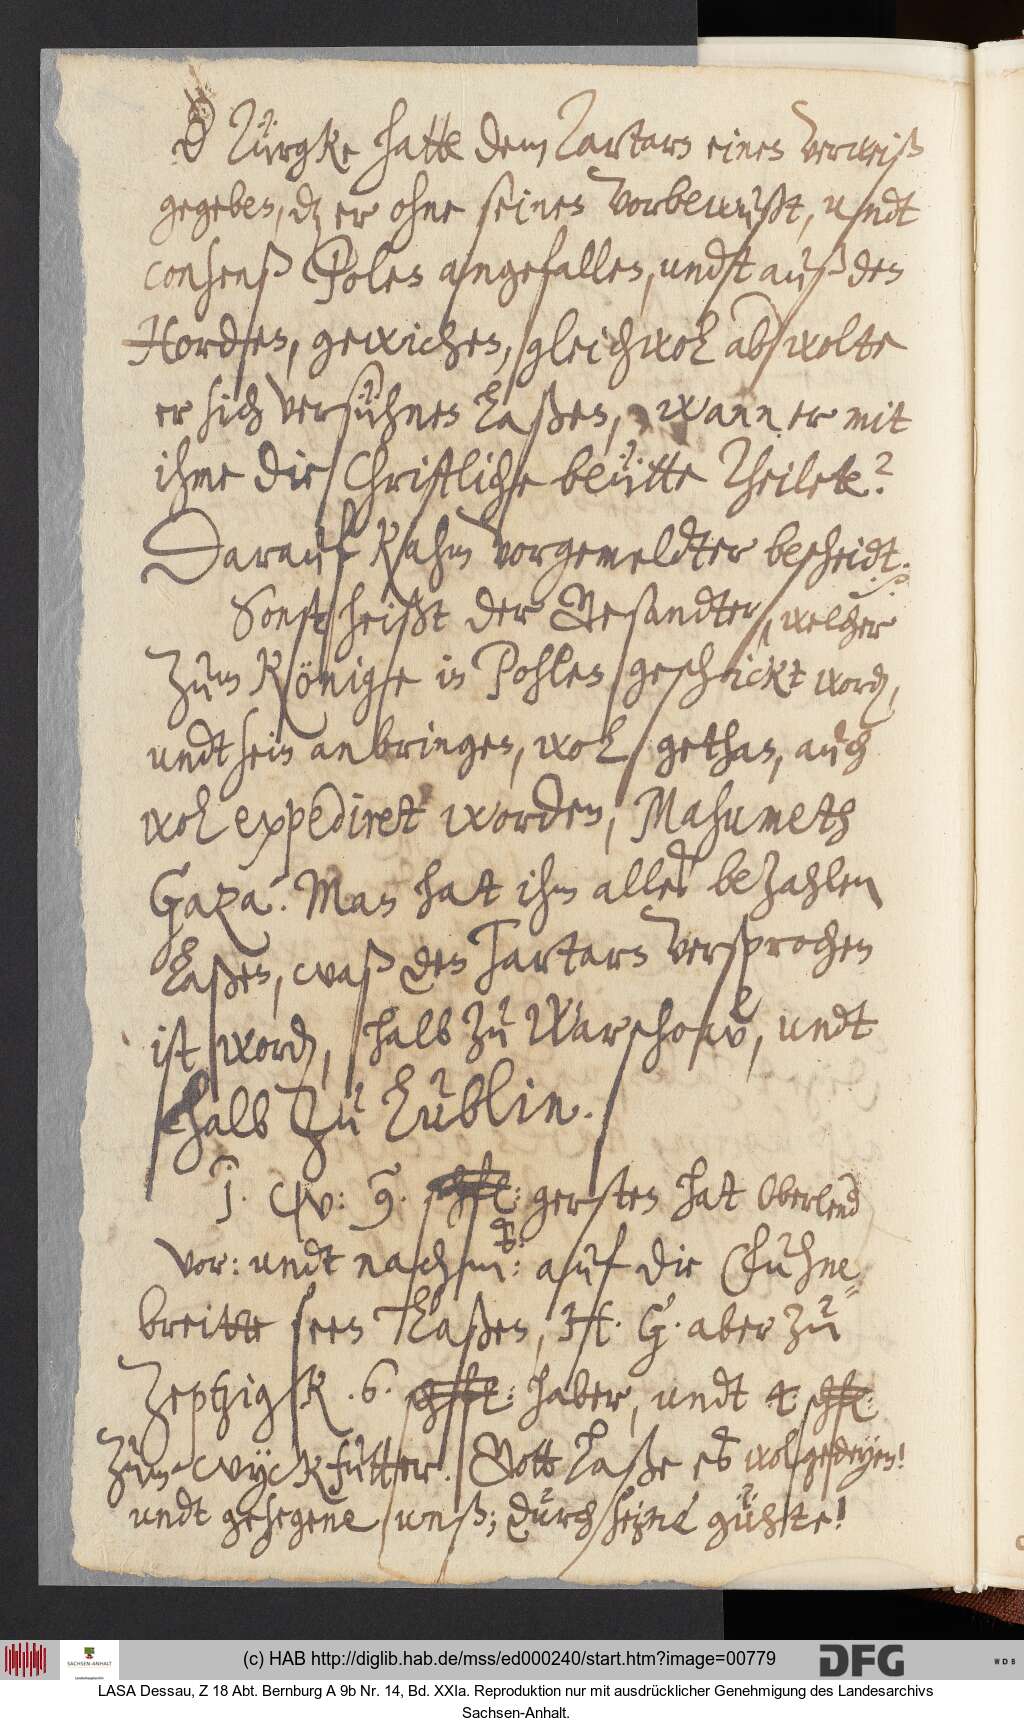 D Türgke hatte dem Tartarn einen verweiß
gegeben, dz er ohne seinen vorbewußt, undt
consenß Polen angefallen, undt auß den
Horden, gewichen, gleichwol aber wolte
er sich versühnen laßen, wann er mit
ihme die Christliche beütte theilete?
Darauf kahm vorgemeldter bescheidt.
Sonst heißt der Gesandter, welcher
zum Könige in Pohlen geschickt word,
undt sein anbringen, wol gethan, auch
wol expediret worden, Mahumeth
Gaza. Man hat ihm alles bezahlen
laßen, waß den Tartarn versprochen
ist word, halb zu Warschow, undt
halb zu Lublin.
j. W: 9. schfl: gersten hat Oberlend
vor: undt nachm: auf die Fuhne
breitte seen laßen, Jtt. G. aber zu
Zeptzigk .6. schfl: haber, undt 4. schfl:
zum wyckfutter. Gott laße es wol gedeyen!
undt gesegene unß; durch seine gühte!
(c) HAB http://diglib.hab.de/mss/ed000240/start.htm?image=00779
SACHSEN-ANHALT
DFG
WDB
LASA Dessau, Z 18 Abt. Bernburg A 9b Nr. 14, Bd. XXIa. Reproduktion nur mit ausdrücklicher Genehmigung des Landesarchivs
Sachsen-Anhalt.